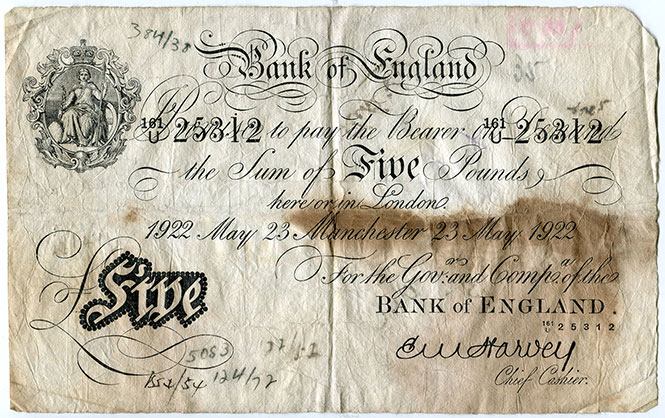 384/38
Bank of England
35
161/U 25312 161/U 25312
I Promise to pay the Bearer on Demand
the Sum of Five Pounds
here or in London
1922 May 23 Manchester 23 May 1922
For the Govr. and Compa. of the
BANK of ENGLAND.
Five
161/U 25312
5083
E M Harvey
124/72
Chief Cashier.